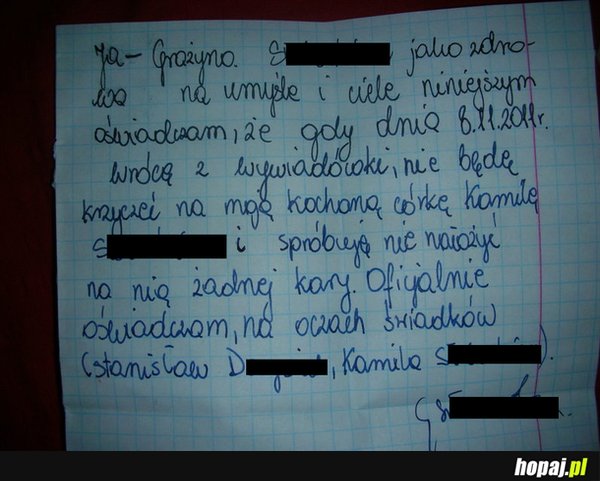 Ja – Grażyna S jako zdro-
wa na umyśle i ciele niniejszym
oświadczam, że gdy dnia 8.11.2011r.
wrócę z wywiadówki, nie będę
krzyczeć na moją kochaną córkę Kamilę
S i spróbuję nie nałożyć
na nią żadnej kary. Oficjalnie
oświadczam, na oczach świadków
(Stanisław D, Kamila S).
hopaj.pl